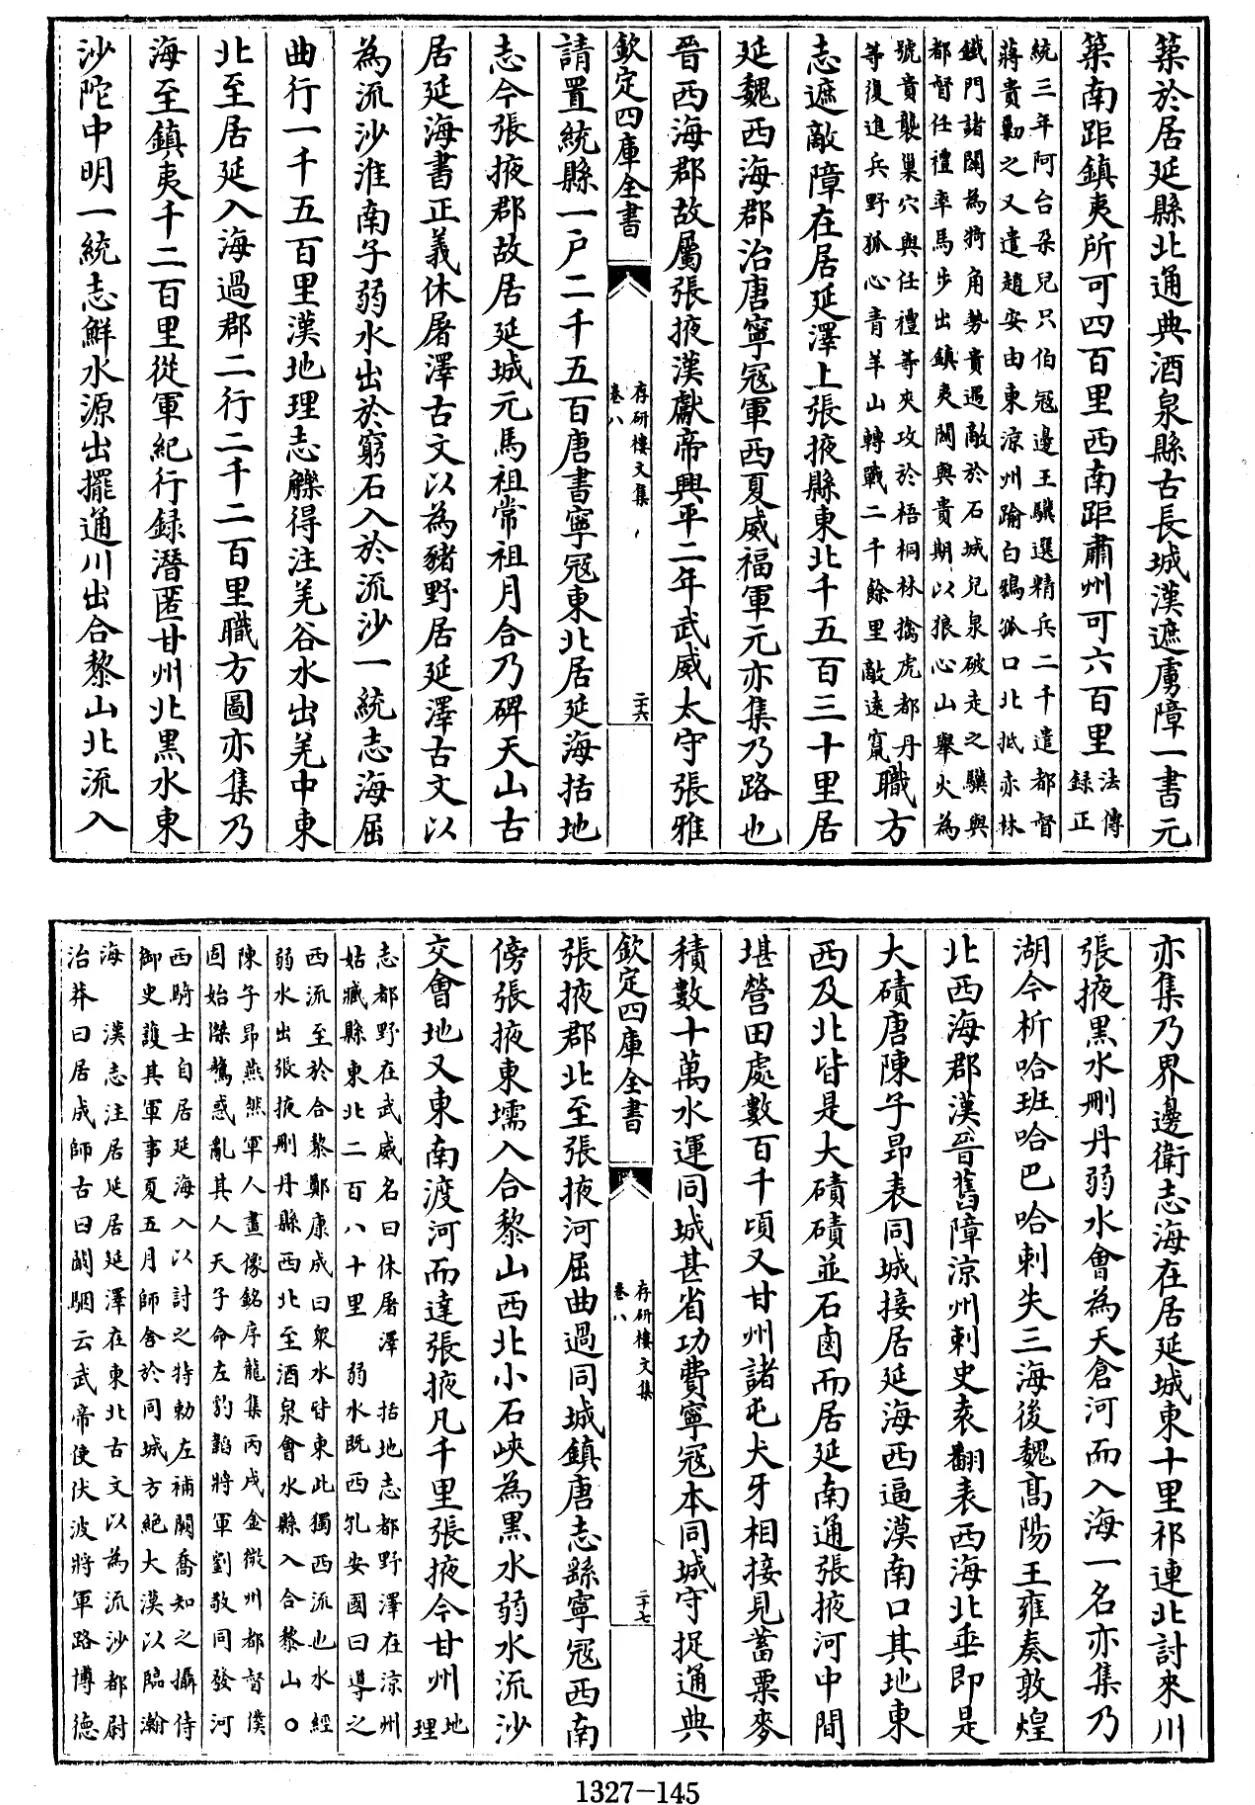 築於居延縣北通典酒泉縣古長城漢遮虜障一書元
築南距鎮夷所可四百里西南距肅州可六百里法傳
録正
統三年阿台朶兒只伯冦邊王驥選精兵二千遣都督
蔣貴勦之又遣趙安由東涼州踰白鵶孤口北抵亦林
鐵門諸關為掎角勢貴遇敵於石城兒泉破走之驥與
都督任禮率馬步出鎮夷關與貴期以狼心山舉火為
號貴襲巢穴與任禮等夾攻於梧桐林擒虎都丹
等復進兵野狐心青羊山轉戰二千餘里敵逺竄職方
志遮敵障在居延澤上張掖縣東北千五百三十里居
延魏西海郡治唐寧冦軍西夏威福軍元亦集乃路也
晉西海郡故屬張掖漢獻帝興平二年武威太守張雅
欽定四庫全書
存研樓文集
卷八
二十六
請置統縣一户二千五百唐書寧冦東北居延海括地
志今張掖郡故居延城元馬祖常祖月合乃碑天山古
居延海書正義休屠澤古文以為豬野居延澤古文以
為流沙淮南子弱水出於窮石入於流沙一統志海屈
曲行一千五百里漢地理志觻得注羌谷水出羌中東
北至居延入海過郡二行二千二百里職方圖亦集乃
海至鎮夷千二百里從軍紀行録潛匿甘州北黒水東
沙陀中明一統志鮮水源出擺通川出合黎山北流入
亦集乃界邊衛志海在居延城東十里祁連北討來川
張掖黒水刪丹弱水會為天倉河而入海一名亦集乃
湖今析哈班哈巴哈剌失三海後魏髙陽王雍奏敦煌
北西海郡漢晉舊障涼州刺史袁翻表西海北垂即是
大磧唐陳子昻表同城接居延海西逼漠南口其地東
西及北皆是大磧磧並石鹵而居延南通張掖河中間
堪營田處數百千頃又甘州諸屯犬牙相接見蓄粟麥
積數十萬水運同城甚省功費寧冦本同城守捉通典
欽定四庫全書
存研樓文集
卷八
二十七
張掖郡北至張掖河屈曲過同城鎮唐志繇寧冦西南
傍張掖東壖入合黎山西北小石峽為黒水弱水流沙
交會地又東南渡河而達張掖凡千里張掖今甘州地
理
志都野在武威名曰休屠澤 括地志都野澤在涼州
姑臧縣東北二百八十里 弱水既西孔安國曰導之
西流至於合黎鄭康成曰衆水皆東此獨西流也水經
弱水出張掖刪丹縣西北至酒泉會水縣入合黎山○
陳子昻燕然軍人畫像銘序龍集丙戌金徽州都督僕
固始桀驁惑亂其人天子命左豹韜將軍劉敬同發河
西騎士自居延海入以討之特勅左補闕喬知之攝侍
御史護其軍事夏五月師舍於同城方絶大漠以臨瀚
海 漢志注居延居延澤在東北古文以為流沙都尉
治莽曰居成師古曰闞駰云武帝使伏波將軍路博德
1327-145